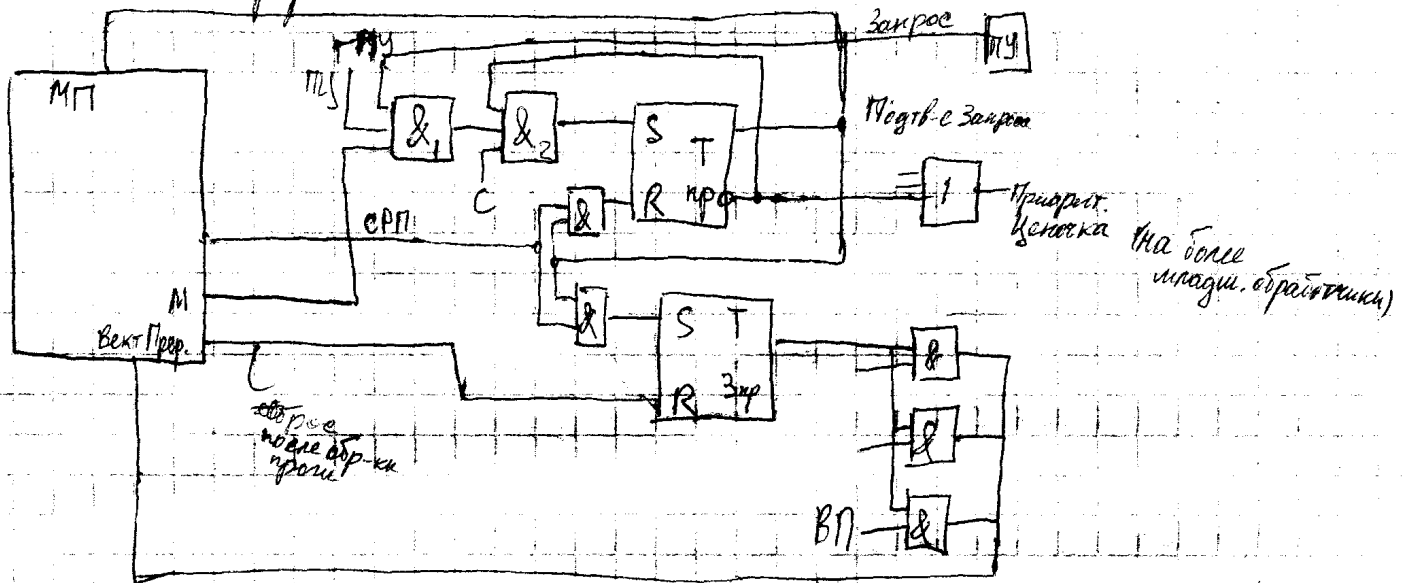 Запрос
ПУ
МП
ПУ
&1
&2
S T
Подтв-е Запроса
C
&
R пр
1
Приорит.
Цепочка (на более
младш. обработчики)
СРП
М
Вект Прер.
&
S T
R Зпр
&
сброс
после обр-ки
проги
&
ВП
&